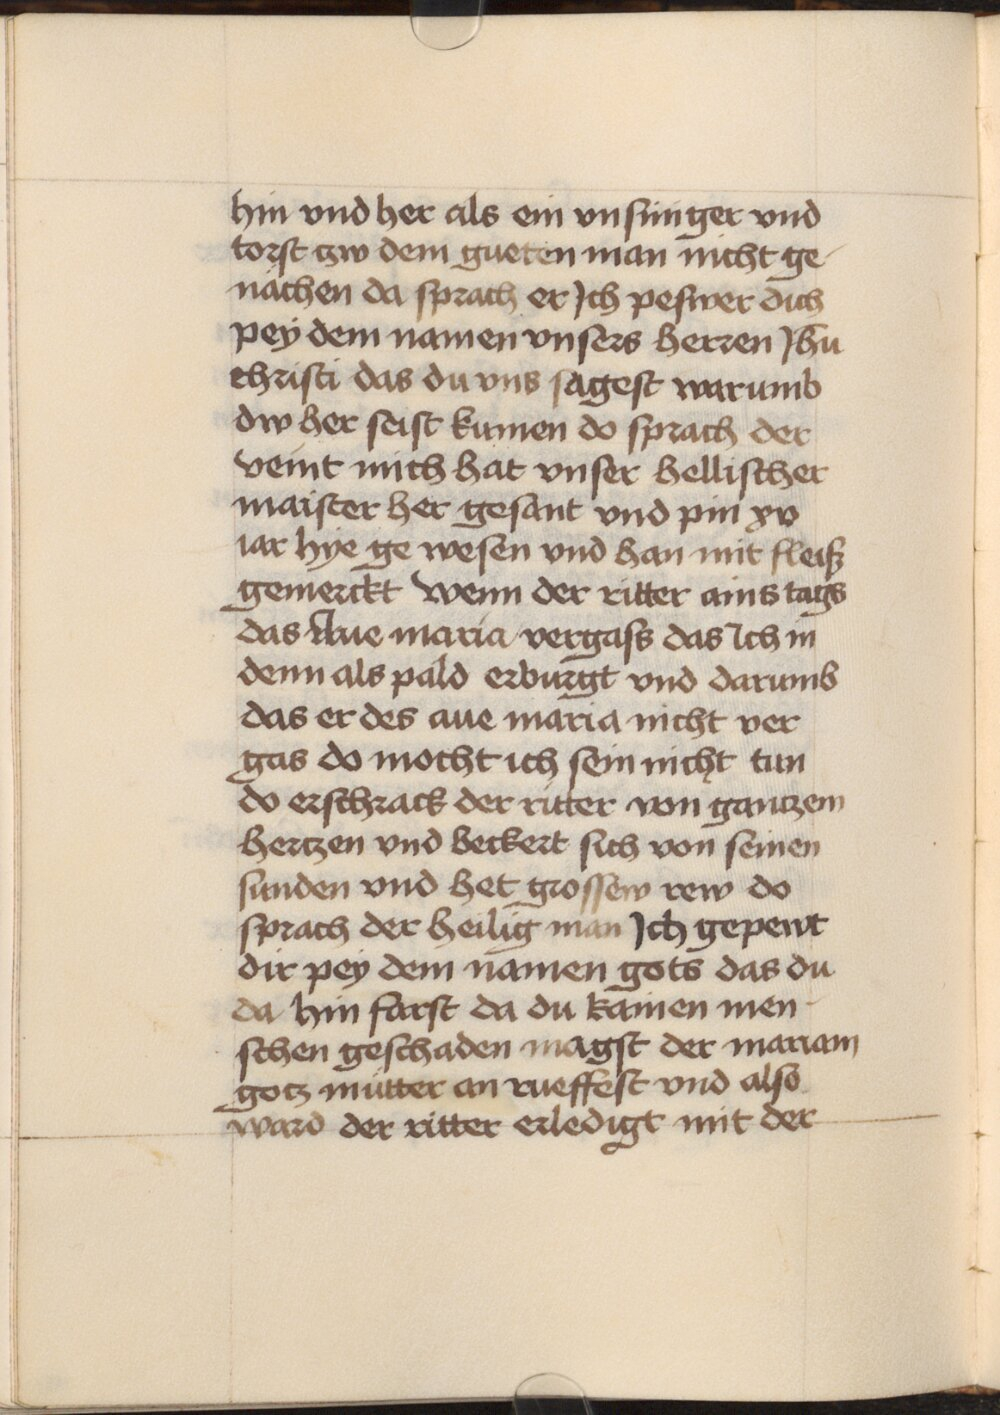 hin vnd her als ein vnsinniger vnd
torst zw dem gueten man nicht ge-
nächen da sprach er Ich peswer dich
pey dem namen vnsers herren Jhu
christi das du vns sagest warumb
dw her seist kumen do sprach der
veint mich hat vnser hellischer
maister her gesant vnd pin xv
iar hye ge wesen vnd han mit fleiß
gemerckt Wenn der ritter ains tags
das Aue maria vergass das Ich in
denn als pald erburgt vnd darumb
das er des aue maria nicht ver
gas do mocht ich sein nicht tun
do erschrack der ritter von gantzem
hertzen vnd beckert sich von seinen
sunden vnd het grossew rew do
sprach der heilig man Ich gepewt
dir pey dem namen gots das du
da hin farst da du kainen men-
schen geschaden magst der mariam
gotz mütter an rueffest vnd also
ward der ritter erledigt mit der